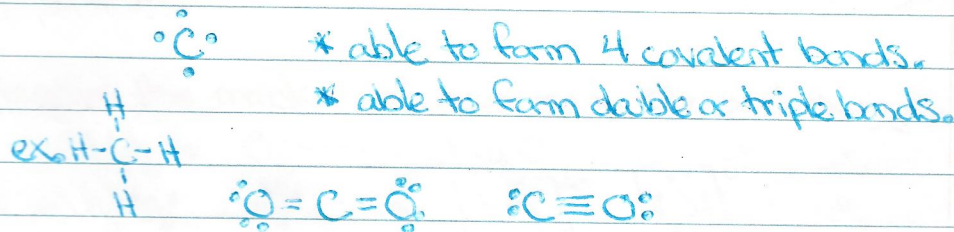 ·C· * able to form 4 covalent bonds.
* able to form double or triple bonds.
H
ex. H-C-H
H
:O=C=O: :C≡O: